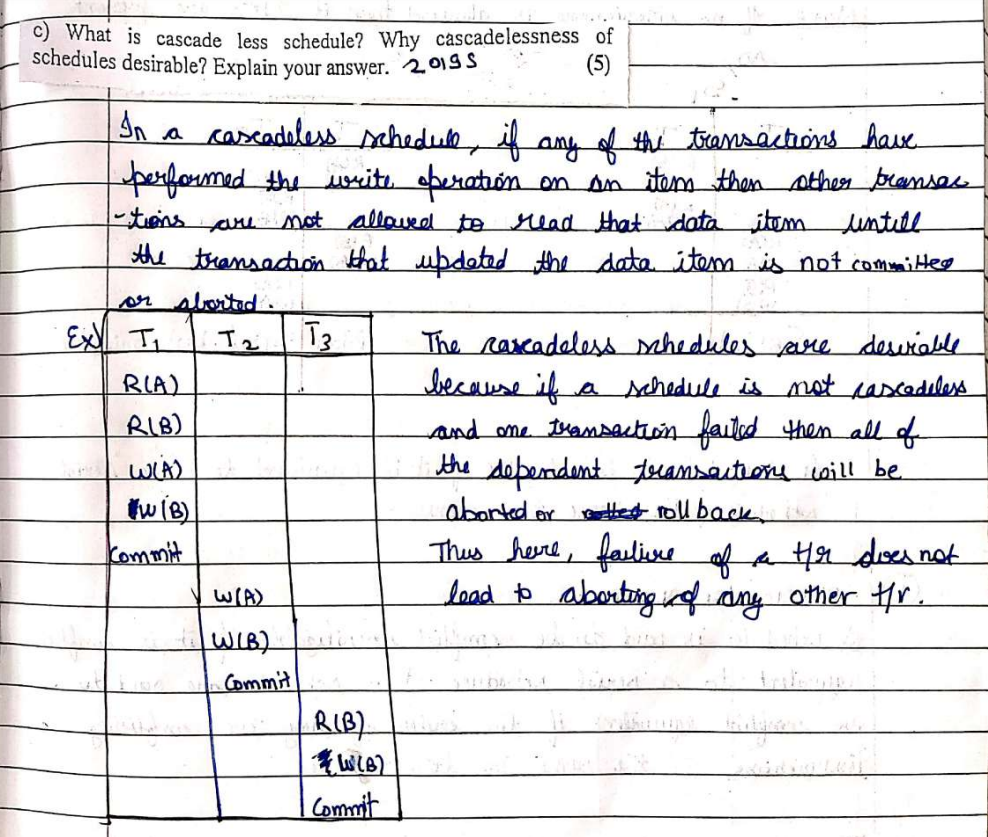 c) What is cascade less schedule? Why cascadelessness of
schedules desirable? Explain your answer. 2019S (5)
In a cascadeless schedule, if any of the transactions have
performed the write operation on an item then other transac
-tions are not allowed to read that data item untill
the transaction that updated the data item is not committed
or aborted.
Ex) T1 T2 T3
R(A)
R(B)
W(A)
W(B)
Commit
W(A)
W(B)
Commit
R(B)
W(B)
Commit
The cascadeless schedules are desirable
because if a schedule is not cascadeless
and one transaction failed then all of
the dependent transactions will be
aborted or roll back.
Thus here, failure of a t/r does not
lead to aborting of any other t/r.